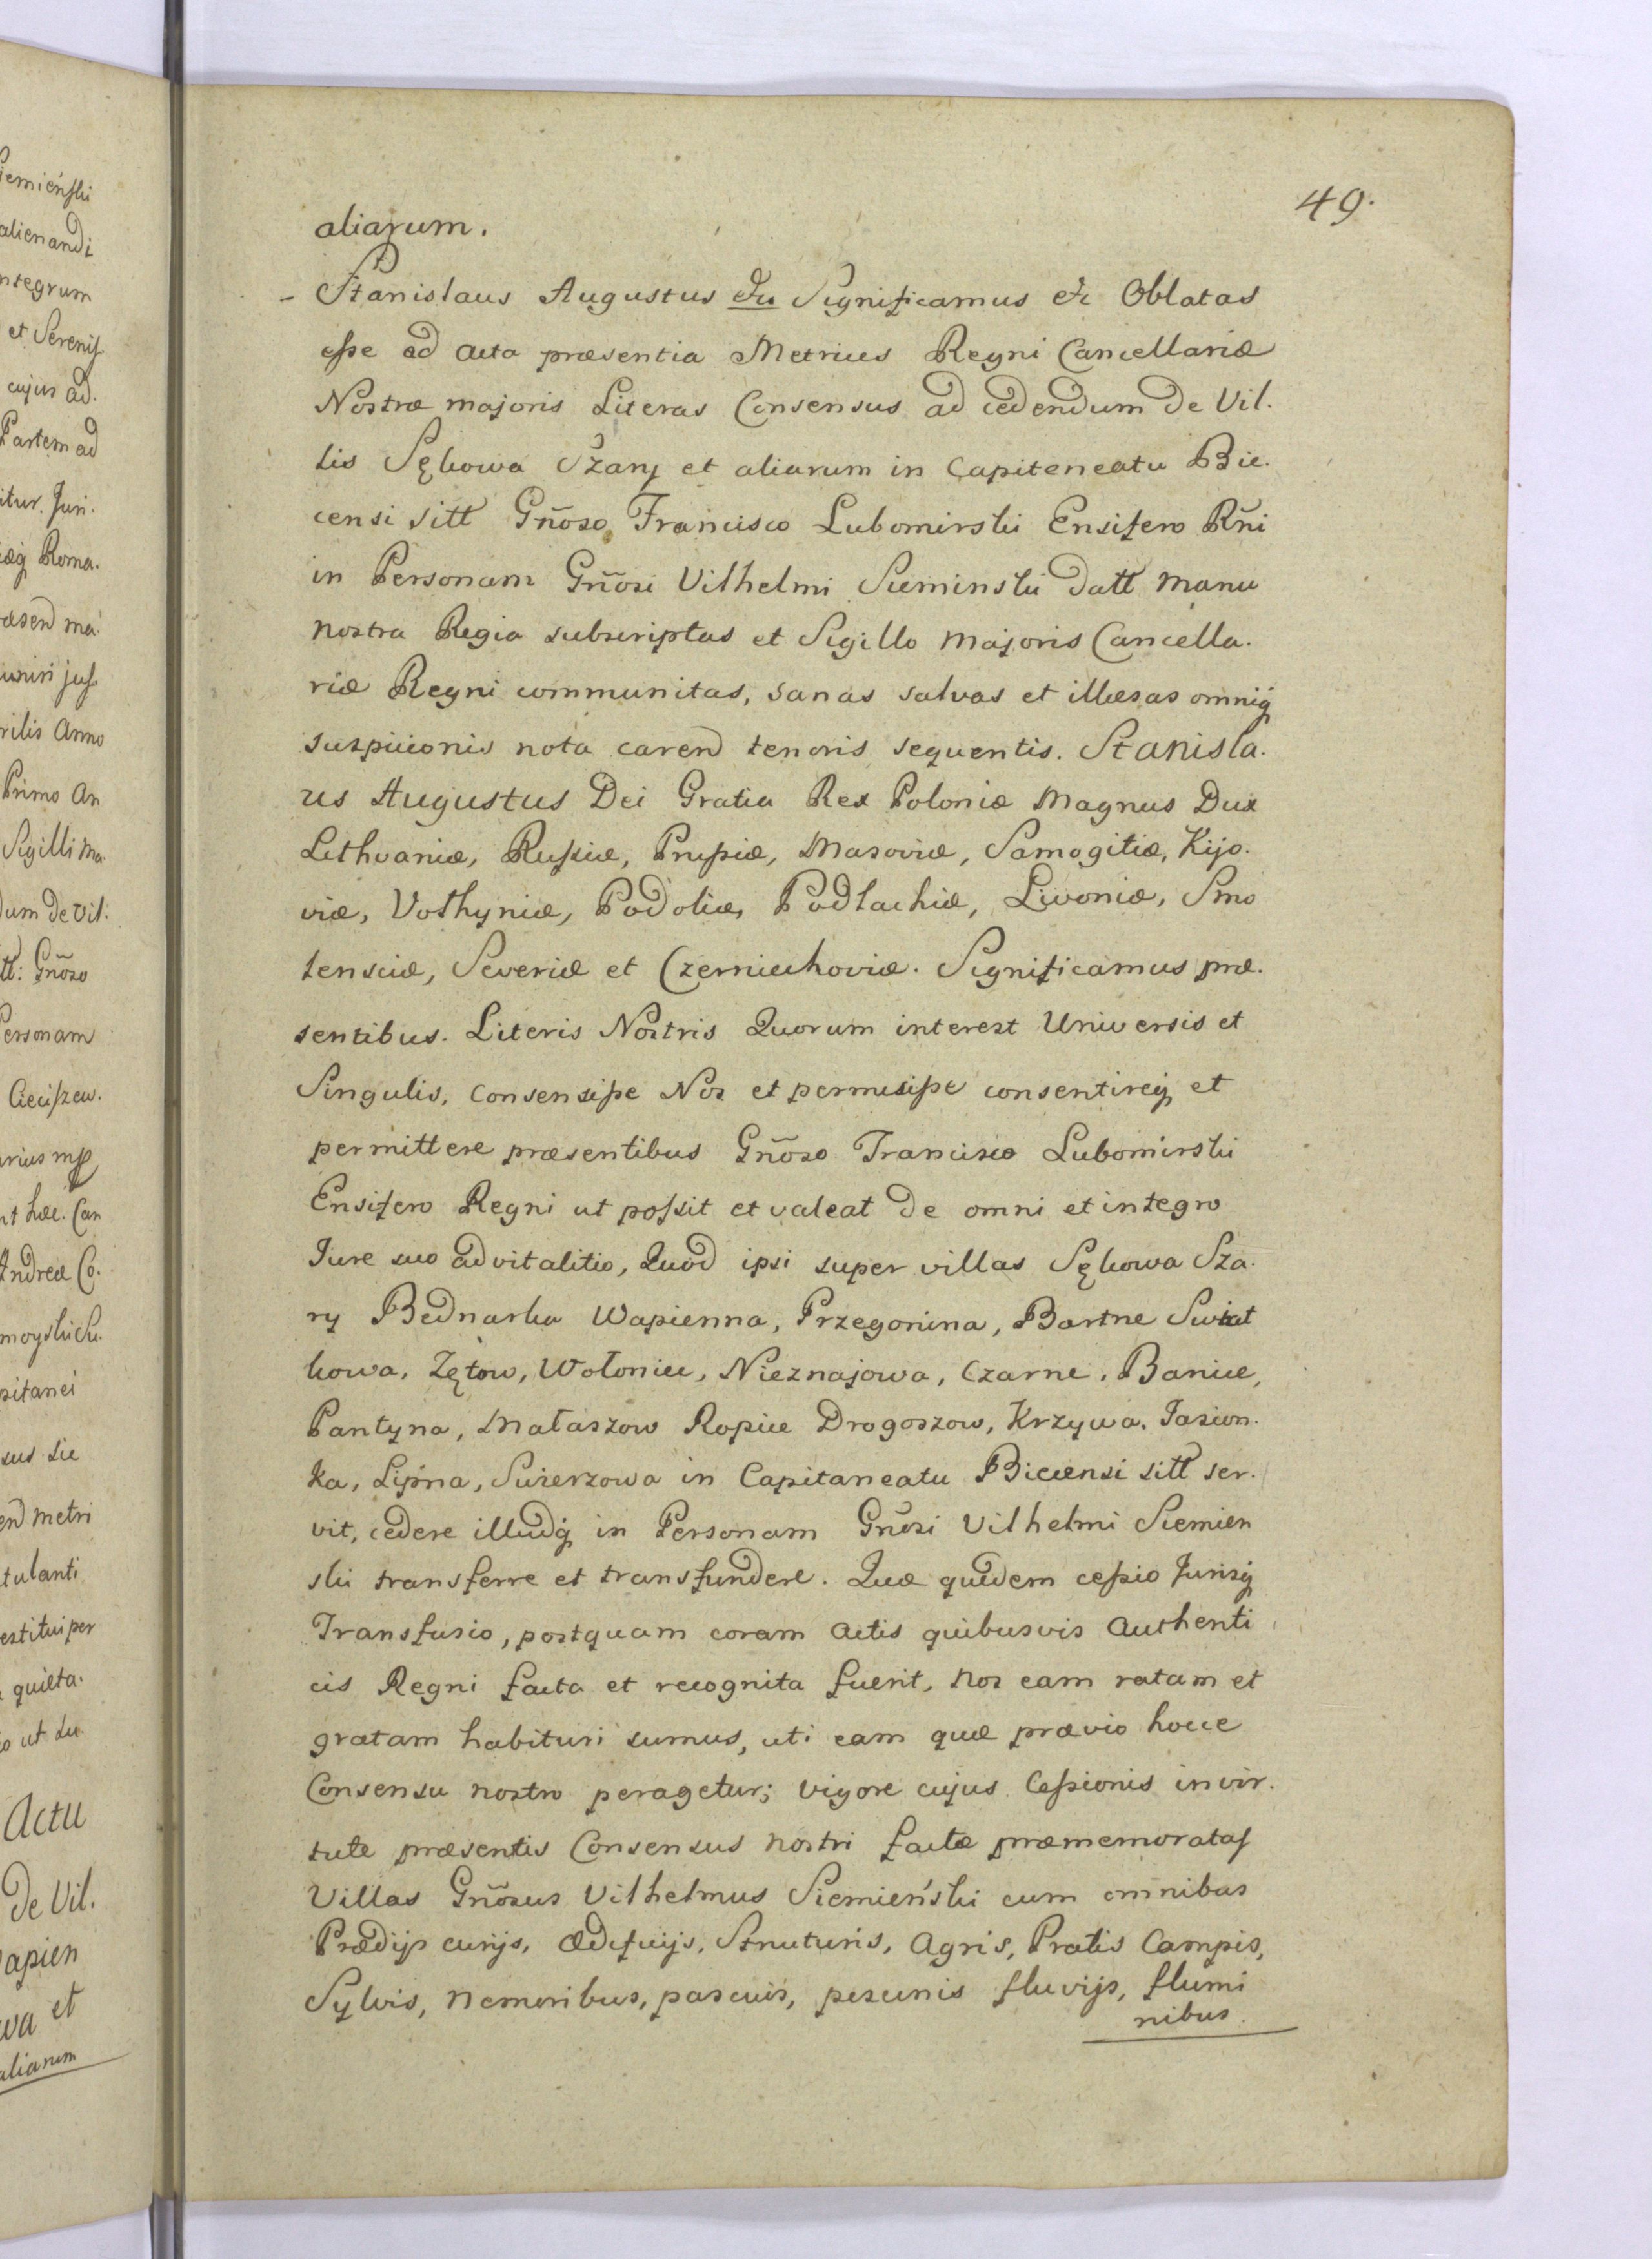 49.
aliarum.
- Stanislaus Augustus etc Significamus etc Oblatas
esse ad Acta præsentia Metrices Regni Cancellariæ
Nostræ majoris Literas Consensus ad cedendum de Vil.
lis Sękowa Szary et aliarum in Capiteneatu Bie.
censi sitt Gñoso Francisco Lubomirski Ensifero Rñi
in Personam Gñosi Vilhelmi Sieminski datt manu
nostra Regia subscriptas et Sigillo majoris Cancella.
riæ Regni communitas, sanas salvas et illæsas omniq
suspicionis nota carend tenoris sequentis. Stanisla.
us Augustus Dei Gratia Rex Poloniæ Magnus Dux
Lithvaniæ, Russiæ, Prussiæ, Masoviæ, Samogitiæ, Kijo.
viæ, Volhyniæ, Podoliæ, Podlachiæ, Livoniæ, Smo
lensciæ, Severiæ et Czerniechoviæ. Significamus præ.
sentibus. Literis Nostris Quorum interest Universis et
Singulis, consensisse Nos et permisisse consentireq et
permittere præsentibus Gñoso Francisco Lubomirski
Ensifero Regni ut possit et valeat de omni et integro
Jure suo advitalitio, Quod ipsi super villas Sękowa Sza.
ry Bednarka Wapienna, Przegonina, Bartne Swiat
kowa, Zętow, Wołoniec, Nieznajowa, Czarne, Banice,
Pantyna, Małaszow Ropice Drogoszow, Krzywa, Jasion.
ka, Lipna, Swierzowa in Capitaneatu Biecensi sitt ser.
vit, cedere illudq in Personam Gñosi Vilhelmi Siemien
ski transferre et transfundere. Quæ quidem cessio Jurisq
Transfusio, postquam coram Actis quibusvis Authenti
cis Regni facta et recognita fuerit, nos eam ratam et
gratam habituri sumus, uti eam quæ prævio hocce
Consensu nostro peragetur; vigore cujus Cessionis in vir.
tute præsentis Consensus nostri factæ præmemoratas
Villas Gñosus Vilhelmus Siemieński cum omnibus
Prædijs curijs, ædificijs, Structuris, Agris, Pratis Campis,
Sylvis, nemoribus, pascuis, piscinis fluvijs, flumi
nibus.